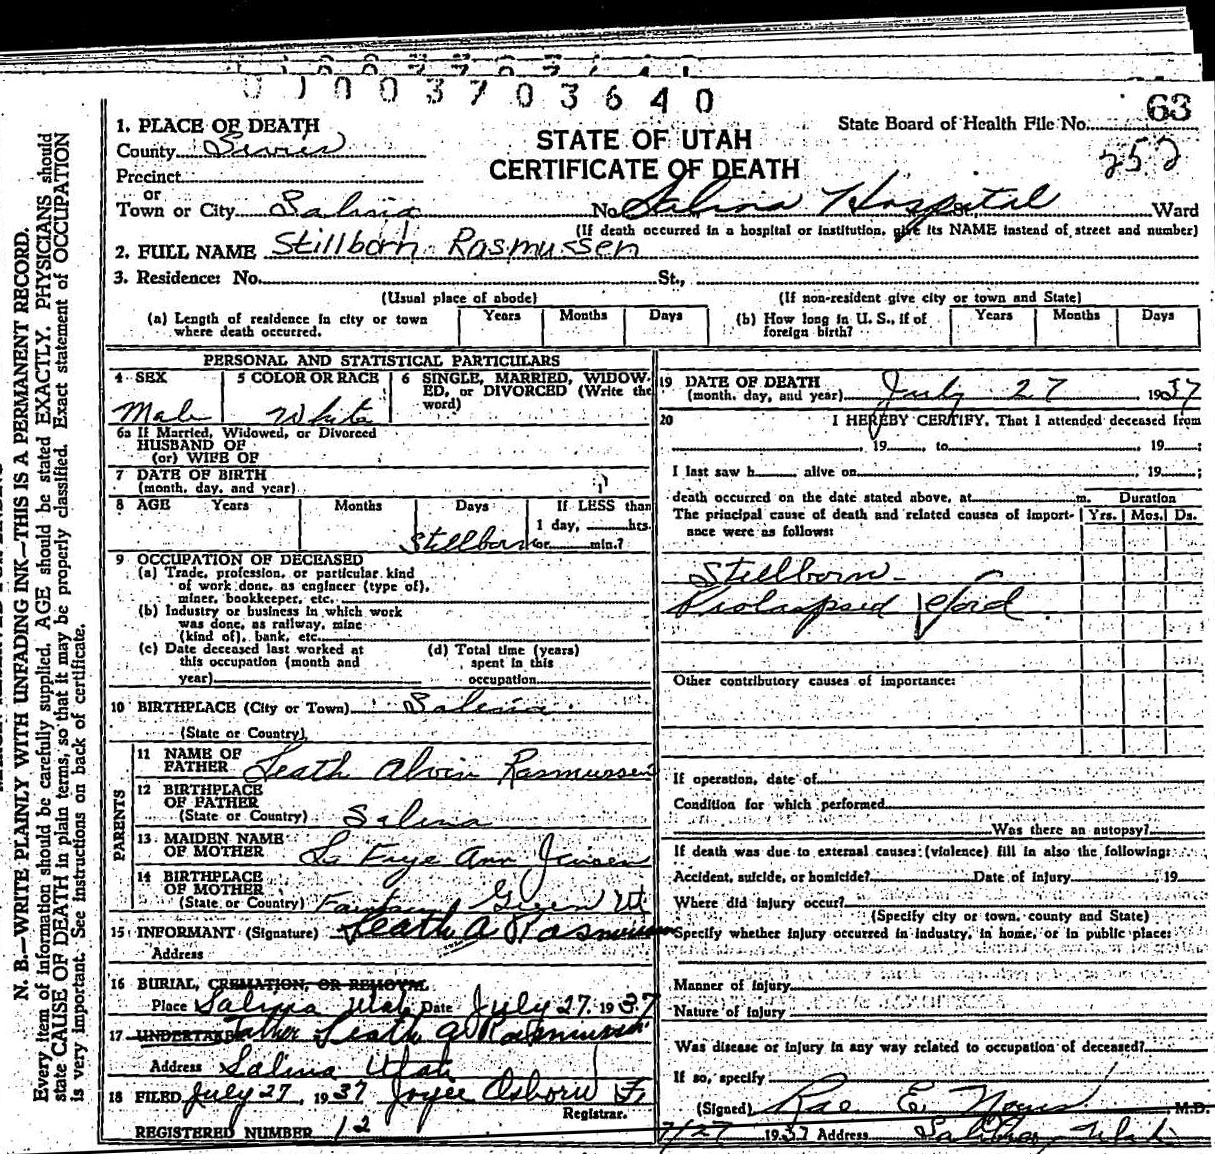 0 1 0 0 3 7 0 3 6 4 0
63
State Board of Health File No.
252
STATE OF UTAH
CERTIFICATE OF DEATH
1. PLACE OF DEATH
County Sevier
Precinct
or
Town or City Salina No. Salina Hospital St., Ward
(If death occurred in a hospital or institution, give its NAME instead of street and number)
2. FULL NAME Stillborn Rasmussen
3. Residence: No. St.,
(Usual place of abode) (If non-resident give city or town and State)
(a) Length of residence in city or town where death occurred. Years Months Days
(b) How long in U. S., if of foreign birth? Years Months Days
PERSONAL AND STATISTICAL PARTICULARS
4 SEX Male
5 COLOR OR RACE White
6 SINGLE, MARRIED, WIDOWED, or DIVORCED (Write the word)
6a If Married, Widowed, or Divorced
HUSBAND OF
(or) WIFE OF
7 DATE OF BIRTH
(month, day, and year)
8 AGE Years Months Days If LESS than
1 day, hrs.
Stillborn or min.?
9 OCCUPATION OF DECEASED
(a) Trade, profession, or particular kind
of work done, as engineer (type of),
miner, bookkeeper, etc.
(b) Industry or business in which work
was done, as railway, mine
(kind of), bank, etc.
(c) Date deceased last worked at
this occupation (month and
year)
(d) Total time (years)
spent in this
occupation
10 BIRTHPLACE (City or Town) Salina
(State or Country)
PARENTS
11 NAME OF
FATHER Leath Alvin Rasmussen
12 BIRTHPLACE
OF FATHER
(State or Country) Salina
13 MAIDEN NAME
OF MOTHER La Faye Ann Jensen
14 BIRTHPLACE
OF MOTHER
(State or Country) Green Ut
15 INFORMANT (Signature) Leath A Rasmussen
Address
16 BURIAL, CREMATION, OR REMOVAL
Place Salina Utah Date July 27, 1937
17 UNDERTAKER Father Leath A Rasmussen
Address Salina Utah
18 FILED July 27, 1937 Joyce Osborn
Registrar.
REGISTERED NUMBER 12
19 DATE OF DEATH
(month, day, and year) July 27 1937
20 I HEREBY CERTIFY, That I attended deceased from
, 19 to , 19 ;
I last saw h alive on , 19 ;
death occurred on the date stated above, at m. Duration
The principal cause of death and related causes of importance were as follows: Yrs. Mos. Ds.
Stillborn -
Prolapsed Cord
Other contributory causes of importance:
If operation, date of
Condition for which performed
Was there an autopsy?
If death was due to external causes (violence) fill in also the following:
Accident, suicide, or homicide? Date of injury , 19
Where did injury occur?
(Specify city or town, county and State)
Specify whether injury occurred in industry, in home, or in public place:
Manner of injury
Nature of injury
Was disease or injury in any way related to occupation of deceased?
If so, specify
(Signed) Rae E. Noyes M.D.
7/27 1937 Address Salina, Utah
N. B.—WRITE PLAINLY WITH UNFADING INK—THIS IS A PERMANENT RECORD.
Every item of information should be carefully supplied. AGE should be stated EXACTLY. PHYSICIANS should
state CAUSE OF DEATH in plain terms, so that it may be properly classified. Exact statement of OCCUPATION
is very important. See instructions on back of certificate.